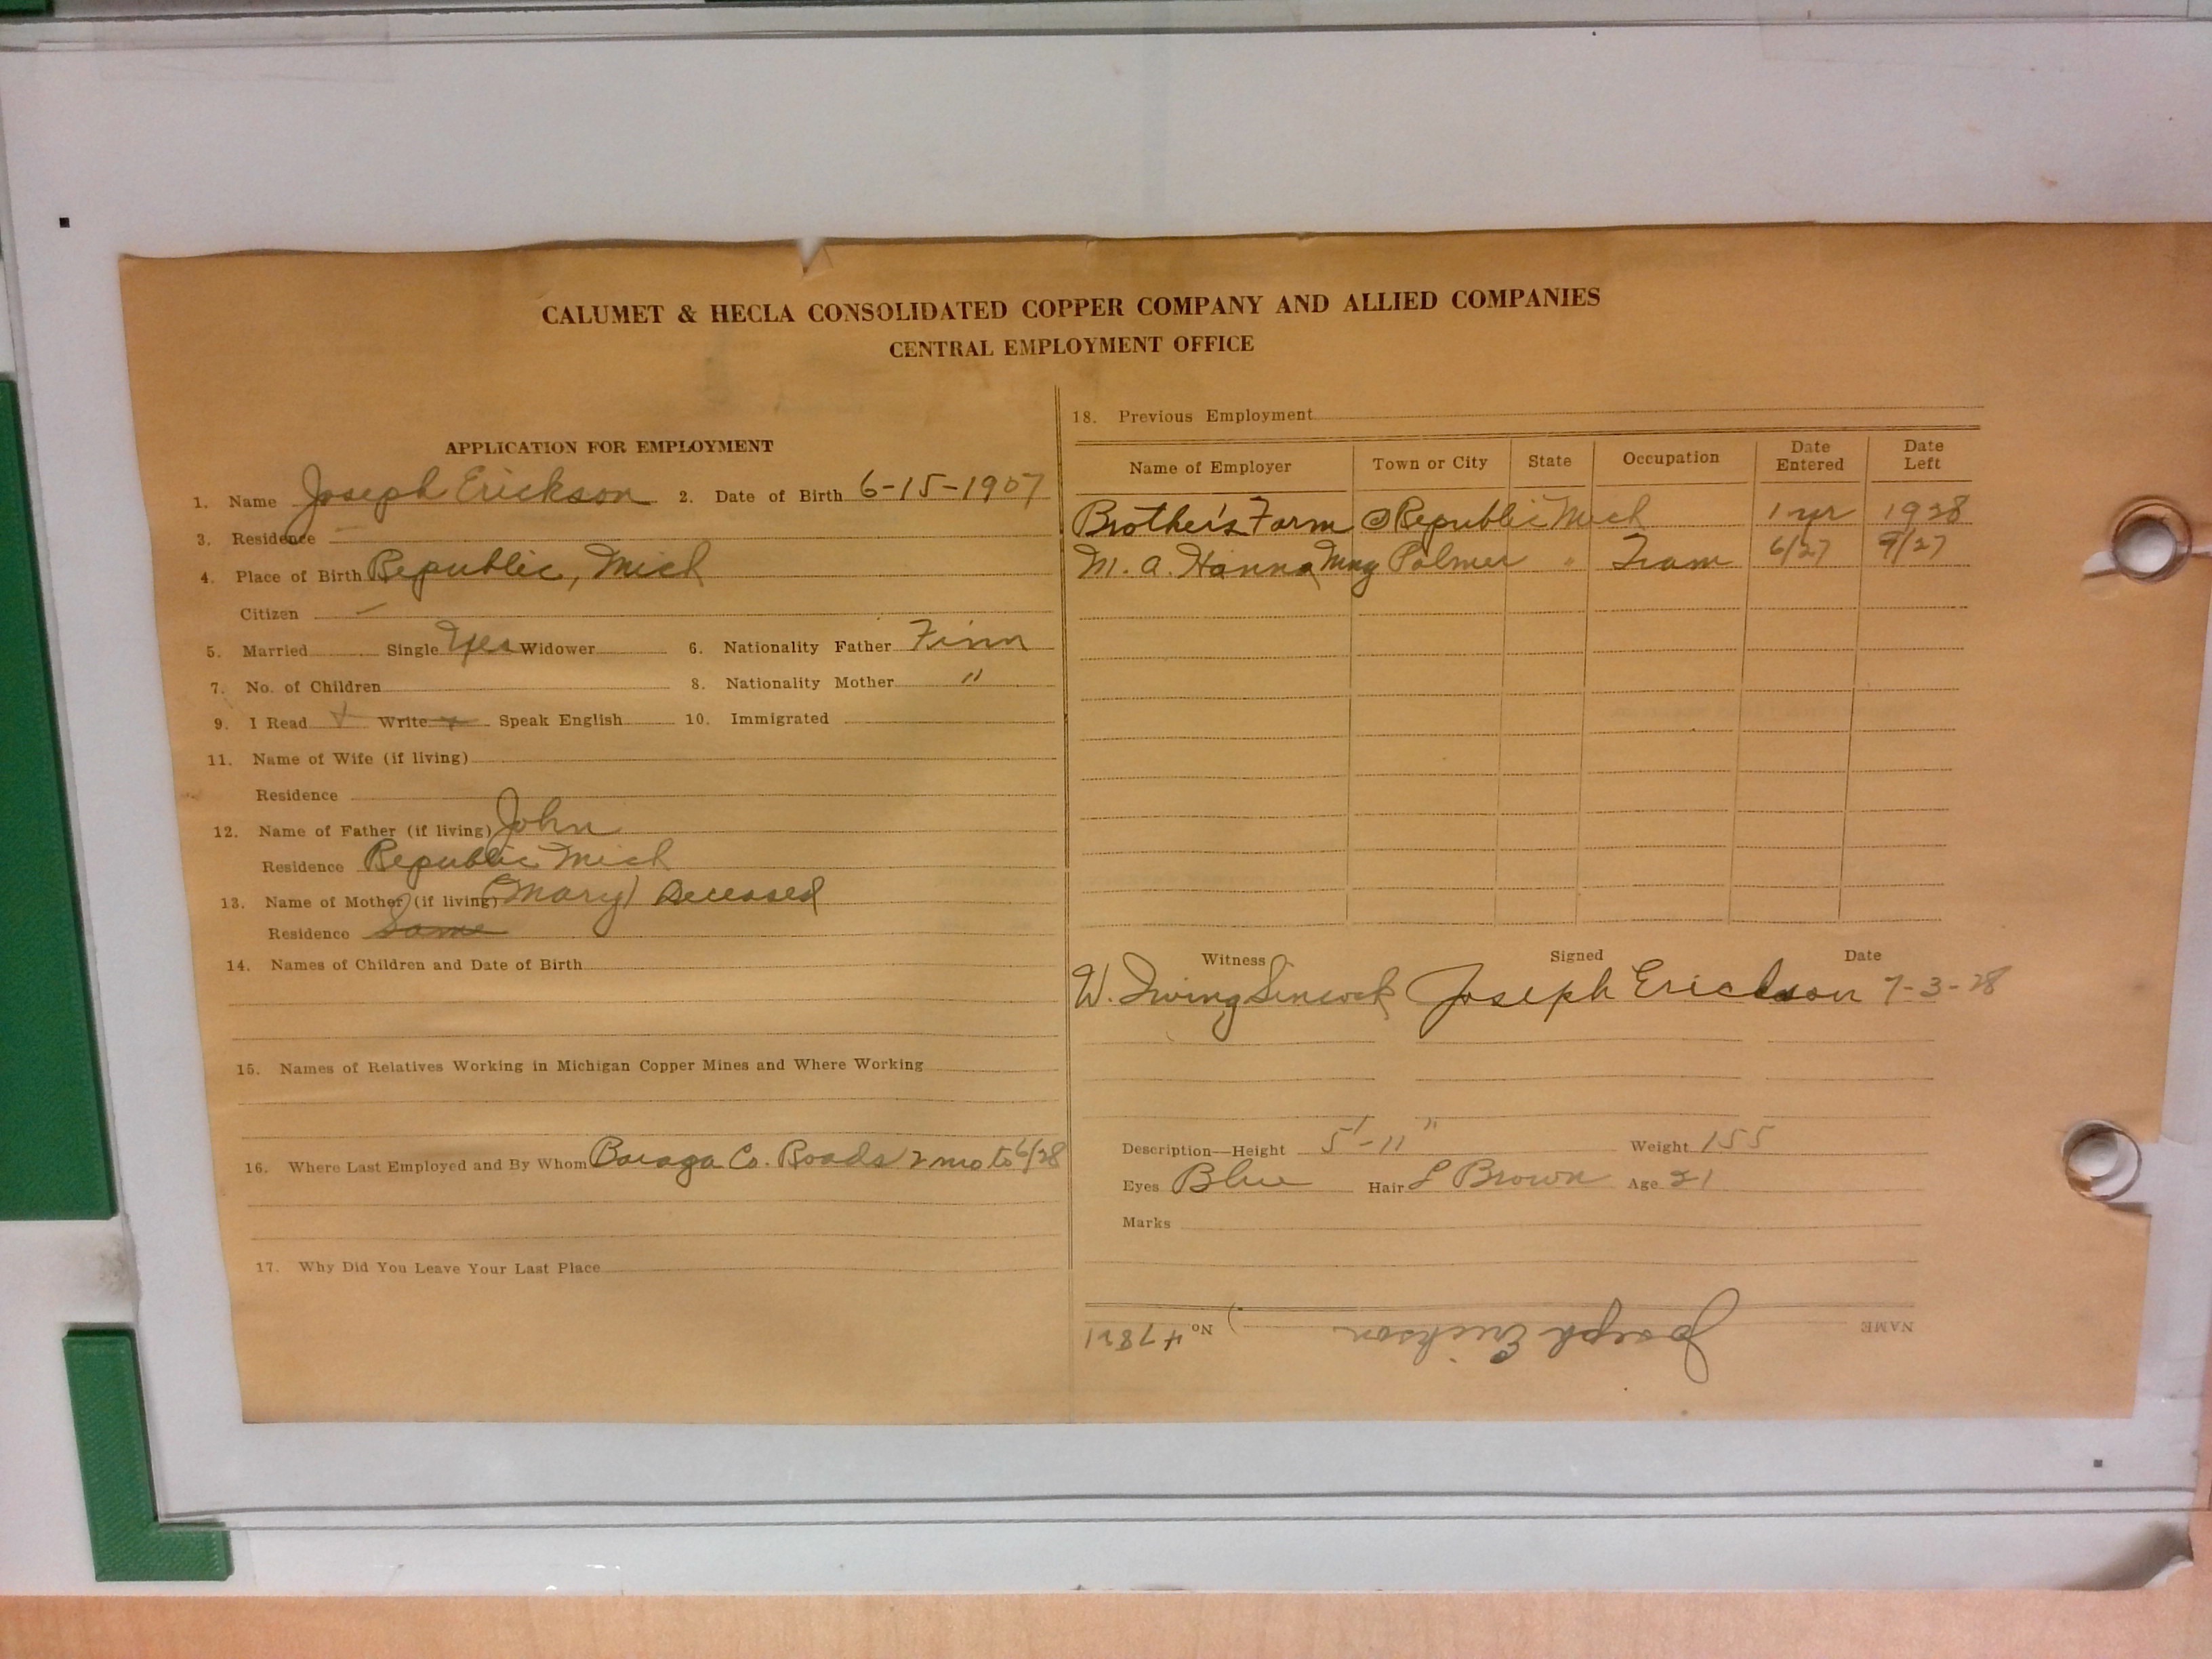 CALUMET & HECLA CONSOLIDATED COPPER COMPANY AND ALLIED COMPANIES
CENTRAL EMPLOYMENT OFFICE
APPLICATION FOR EMPLOYMENT
1. Name Joseph Erickson 2. Date of Birth 6-15-1907
3. Residence —
4. Place of Birth Republic, Mich
Citizen —
5. Married Single Yes Widower 6. Nationality Father Finn
7. No. of Children 8. Nationality Mother "
9. I Read Write Speak English 10. Immigrated
11. Name of Wife (if living)
Residence
12. Name of Father (if living) John
Residence Republic Mich
13. Name of Mother (if living) (Mary) Deceased
Residence Same
14. Names of Children and Date of Birth
15. Names of Relatives Working in Michigan Copper Mines and Where Working
16. Where Last Employed and By Whom Baraga Co. Roads 2 mo to 6/28
17. Why Did You Leave Your Last Place
18. Previous Employment
Name of Employer Town or City State Occupation Date Entered Date Left
Brother's Farm @ Republic Mich 1 yr 1928
M. A. Hanna Mng Palmer " Tram 6/27 9/27
Witness Signed Date
W. Irving Sincock Joseph Erickson 7-3-28
Description—Height 5'-11" Weight 155
Eyes Blue Hair L Brown Age 21
Marks
NAME Joseph Erickson No. 47821